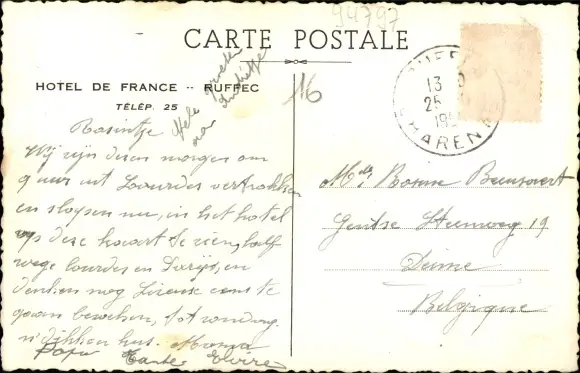 94797
CARTE POSTALE
HOTEL DE FRANCE -- RUFFEC
TÉLÉP. 25
116
Hele
van
RUFFEC
13
25
CHARENTE
Rosintje
Wij zijn dezen morgen om
9 uur uit Lourdes vertrokken
en slapen nu, in het hotel
op deze kaart te zien, half
wege Lourdes en Parijs, en
denken nog Lisieux eens te
gaan bezoeken, tot zondag
n'dikken kus. Mama
Papa Tante Elvire
Mlle Rosine
Gentse Steenweg 19
Deinze
Belgique